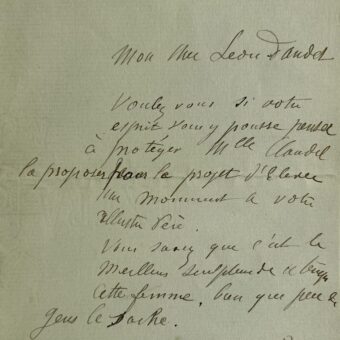 Mon cher Leon Daudet
Voulez vous si votre
esprit vous y pousse penser
à protéger Mlle Claudel
la proposer pour le projet d'Elever
un monument a votre
illustre Père.
Vous savez que c'est le
meilleur sculpteur de ce temps
cette femme, bien que peu de
gens le sache.